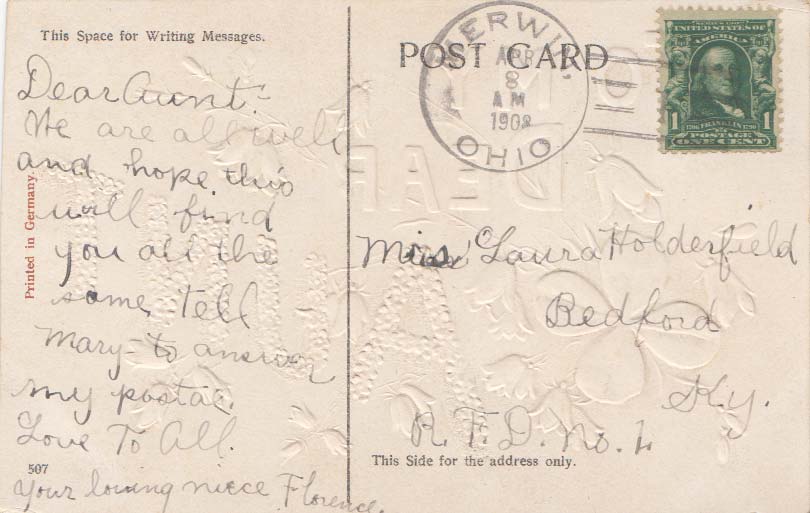 This Space for Writing Messages.
Dear Aunt:-
We are all well
and hope this
will find
you all the
same, tell
Mary to answer
my postal.
Love To All.
Your loving niece Florence.
507
Printed in Germany.
POST CARD
ERWIN,
APR
8
AM
1908
OHIO
SERIES 1902
UNITED STATES OF
AMERICA
1 1706 FRANKLIN 1790 1
POSTAGE
ONE CENT
TO MY
DEAR
AUNT
Miss Laura Holderfield
Bedford
Ky.
R. F. D. No. 4
This Side for the address only.